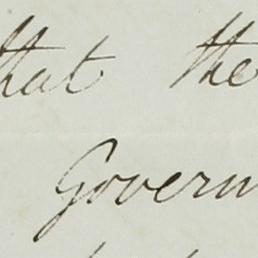 that the
Govern